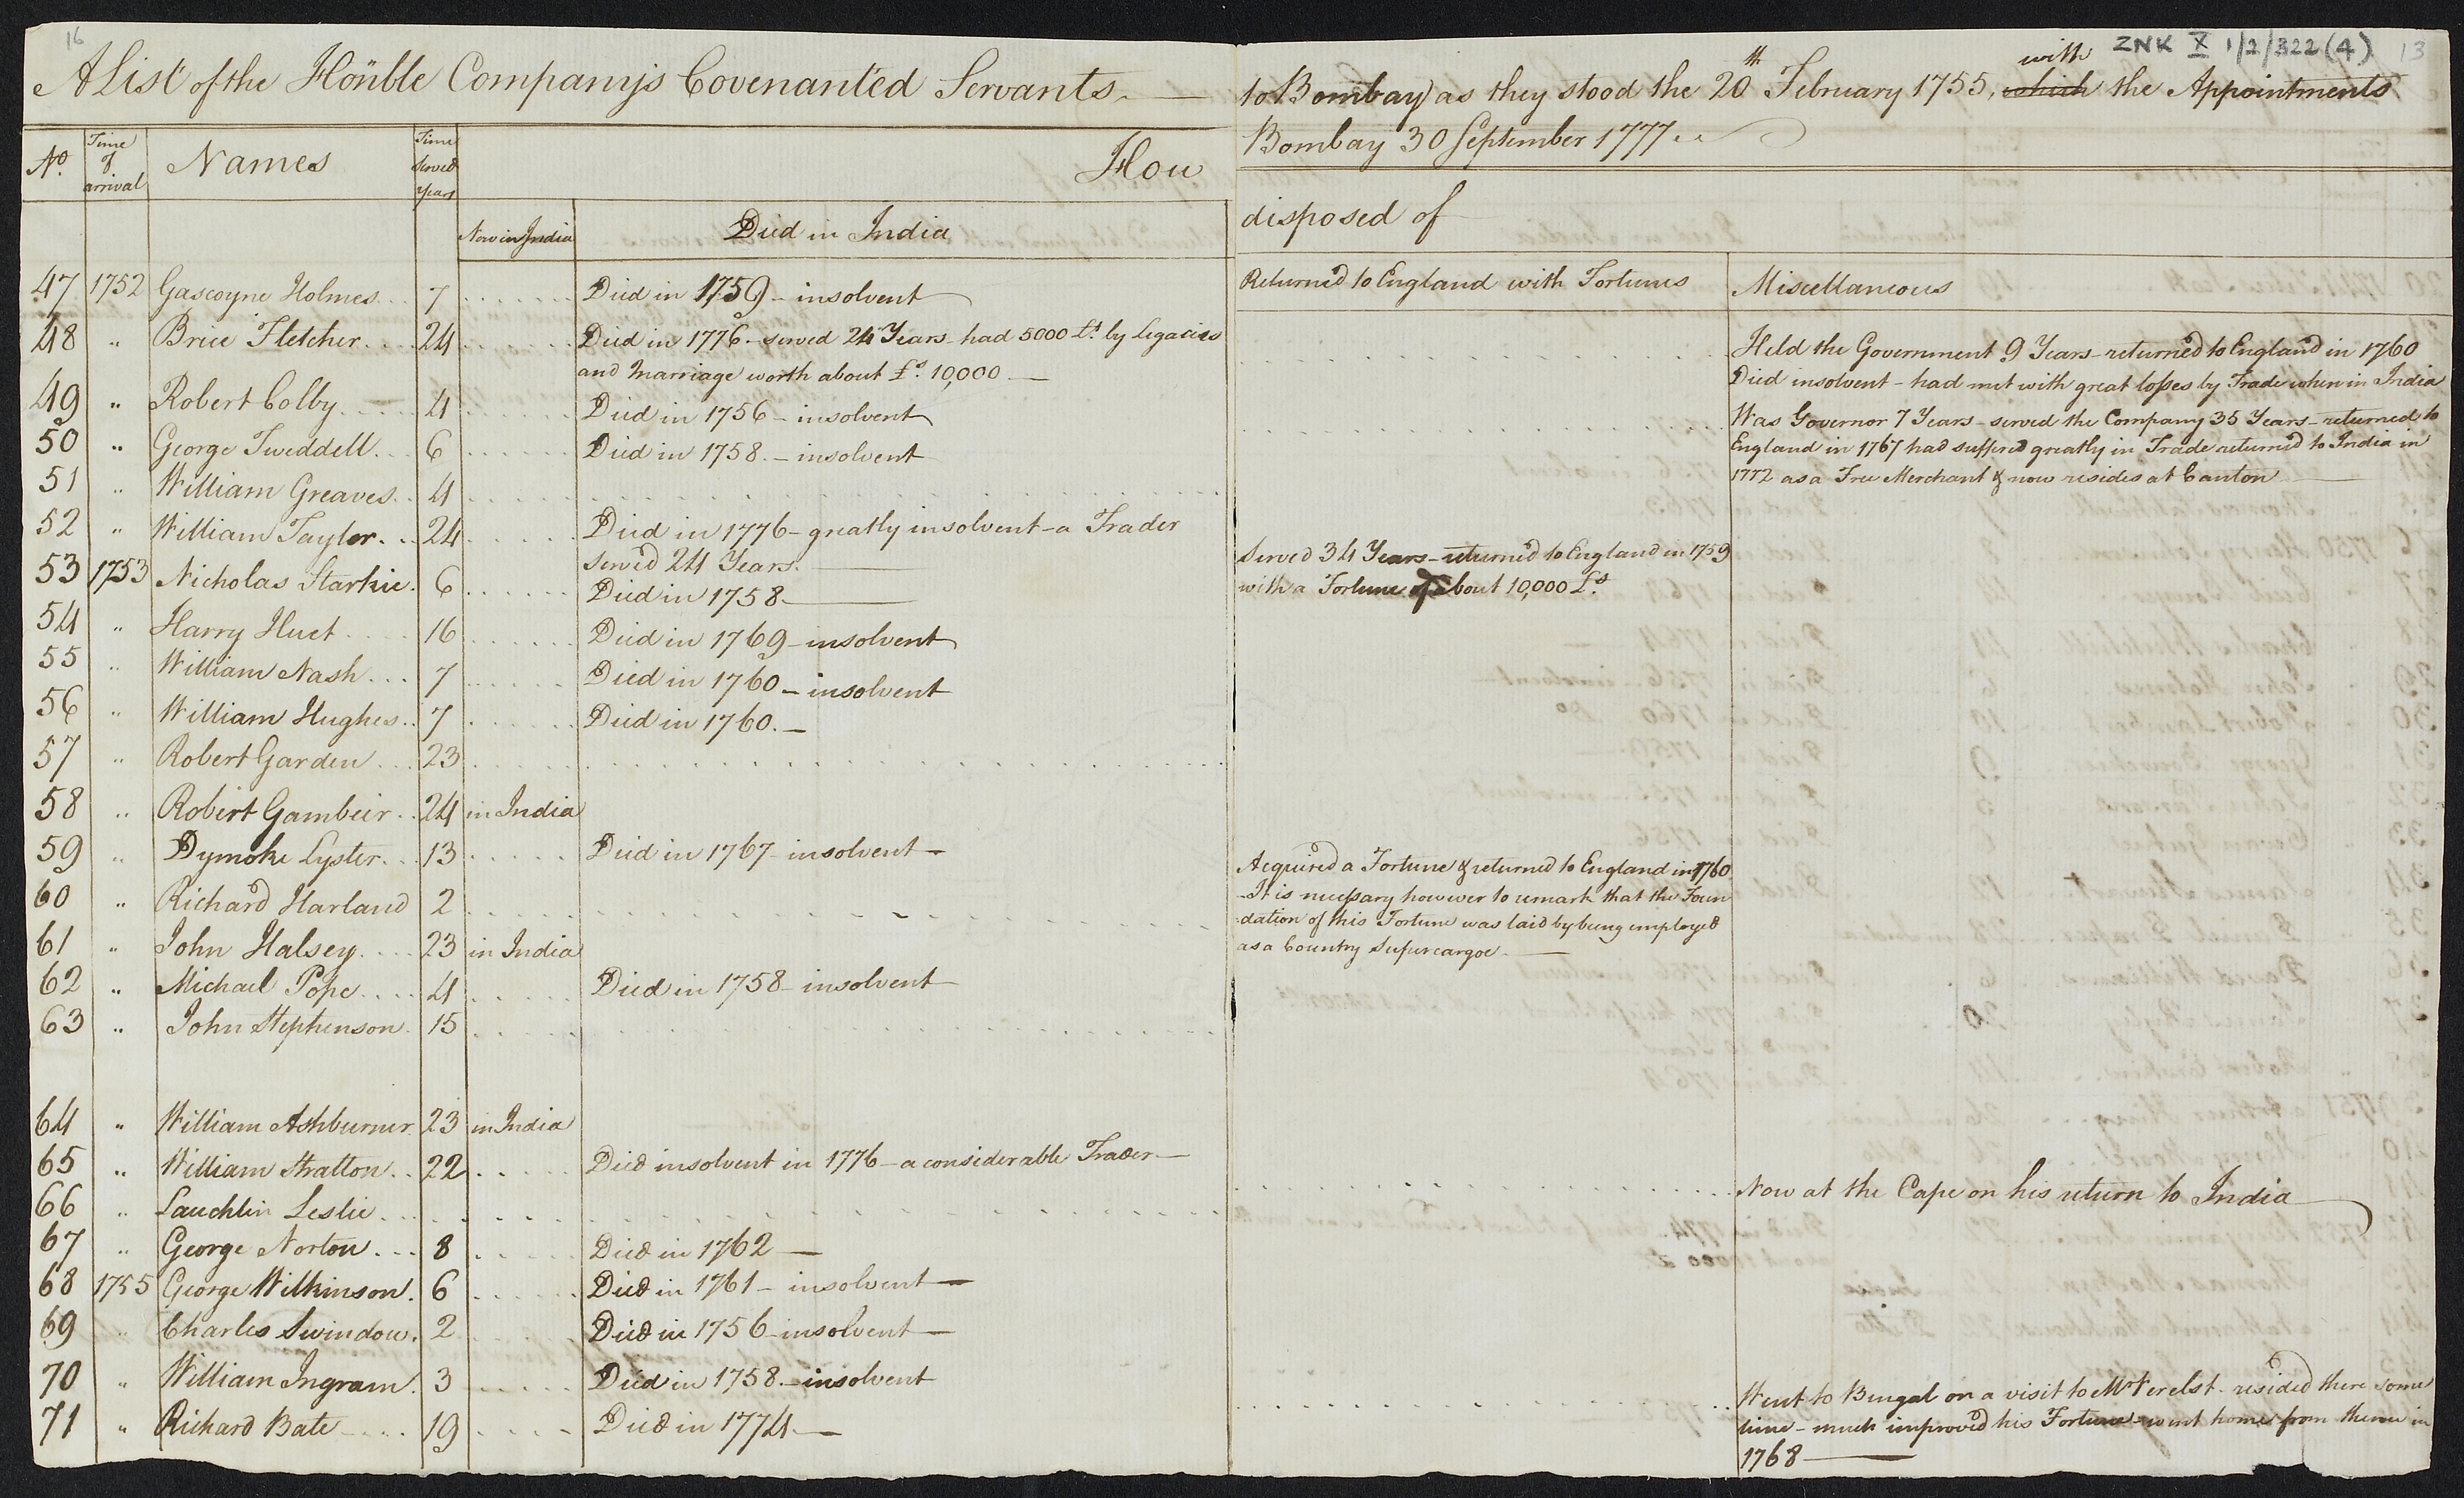 16
ZNK X 1/2/322(4) 13
A List of the Hoñble Company's Covenanted Servants
No. Time of arrival Names Time served Years How
Now in India Died in India
47 1752 Gascoyne Holmes 7 Died in 1759 - insolvent
48 " Brice Fletcher 24 Died in 1776 - served 24 Years - had 5000 £s. by legacies
and Marriage worth about £s. 10,000
49 " Robert Colby 4 Died in 1756 - insolvent
50 " George Tweddell 6 Died in 1758. - insolvent
51 " William Greaves 4
52 " William Tayler 24 Died in 1776 - greatly insolvent - a Trader
served 24 Years.
53 1753 Nicholas Starkie 6 Died in 1758
54 " Harry Huet 16 Died in 1769 - insolvent
55 " William Nash 7 Died in 1760 - insolvent
56 " William Hughes 7 Died in 1760. -
57 " Robert Garden 23
58 " Robert Gambier 24 in India
59 " Dymoke Lyster 13 Died in 1767 - insolvent
60 " Richard Harland 2
61 " John Halsey 23 in India
62 " Michael Pope 4 Died in 1758 - insolvent
63 " John Stephenson 15
64 " William Ashburner 23 in India
65 " William Stratton 22 Died insolvent in 1776 - a considerable Trader
66 " Lauchlin Leslie
67 " George Norton 8 Died in 1762
68 1755 George Wilkinson 6 Died in 1761 - insolvent
69 " Charles Swindow 2 Died in 1756 - insolvent
70 " William Ingram 3 Died in 1758. - insolvent
71 " Richard Bate 19 Died in 1774
with
to Bombay as they stood the 20th February 1755, which the Appointments
Bombay 30 September 1777
disposed of
Returned to England with Fortunes Miscellaneous
Held the Government 9 Years - returned to England in 1760
Died insolvent - had met with great losses by Trade when in India
Was Governor 7 Years - served the Company 35 Years - returned to
England in 1767 had suffered greatly in Trade returned to India in
1772 as a Free Merchant & now resides at Canton
Served 34 Years - returned to England in 1759
with a Fortune of about 10,000 £s.
Acquired a Fortune & returned to England in 1760
- It is necessary however to remark that the Foun
dation of this Fortune was laid by being employed
as a Country Supercargoe
Now at the Cape on his return to India
Went to Bengal on a visit to Mr Verelst - resided there some
time - much improved his Fortune - went home from thence in
1768